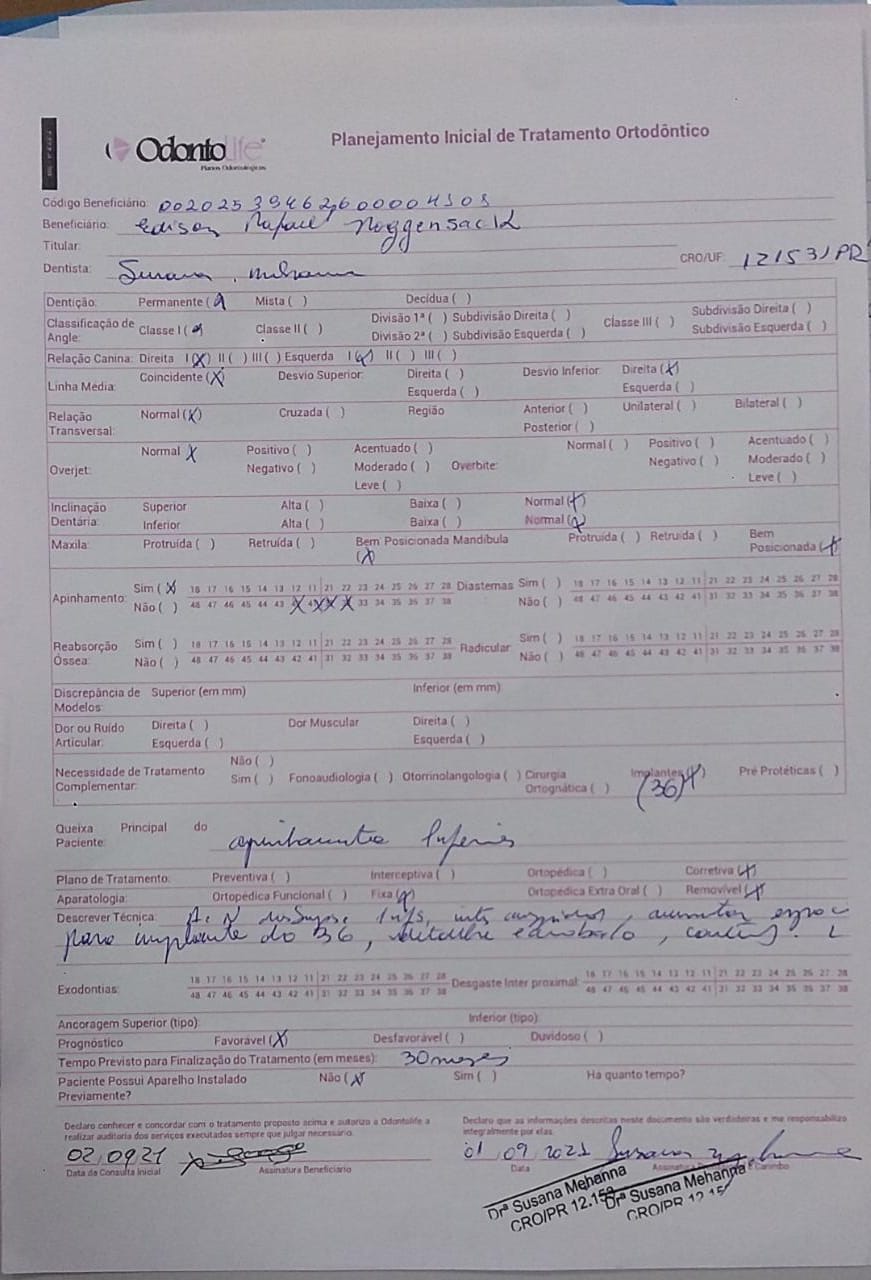 Odontolife
Planos Odontológicos
Planejamento Inicial de Tratamento Ortodôntico
Código Beneficiário: 00202539462600004508
Beneficiário: Edison Rafael Noggensack
Titular:
Dentista: Susana Mehanna CRO/UF: 12153/PR
Dentição: Permanente (X) Mista ( ) Decídua ( )
Classificação de Angle: Classe I (X) Classe II ( ) Divisão 1ª ( ) Subdivisão Direita ( ) Classe III ( ) Subdivisão Direita ( )
Divisão 2ª ( ) Subdivisão Esquerda ( ) Subdivisão Esquerda ( )
Relação Canina: Direita I (X) II ( ) III ( ) Esquerda I (X) II ( ) III ( )
Linha Média: Coincidente (X) Desvio Superior: Direita ( ) Desvio Inferior: Direita (X)
Esquerda ( ) Esquerda ( )
Relação Transversal: Normal (X) Cruzada ( ) Região Anterior ( ) Unilateral ( ) Bilateral ( )
Posterior ( )
Overjet: Normal X Positivo ( ) Acentuado ( ) Overbite: Normal ( ) Positivo ( ) Acentuado ( )
Negativo ( ) Moderado ( ) Negativo ( ) Moderado ( )
Leve ( ) Leve ( )
Inclinação Dentária: Superior Alta ( ) Baixa ( ) Normal (X)
Inferior Alta ( ) Baixa ( ) Normal (X)
Maxila: Protruída ( ) Retruída ( ) Bem Posicionada (X) Mandíbula Protruída ( ) Retruída ( ) Bem Posicionada (X)
Apinhamento: Sim (X) 18 17 16 15 14 13 12 11 21 22 23 24 25 26 27 28 Diastemas Sim ( ) 18 17 16 15 14 13 12 11 21 22 23 24 25 26 27 28
Não ( ) 48 47 46 45 44 43 X 4X X X 33 34 35 36 37 38 Não ( ) 48 47 46 45 44 43 42 41 31 32 33 34 35 36 37 38
Reabsorção Óssea: Sim ( ) 18 17 16 15 14 13 12 11 21 22 23 24 25 26 27 28 Radicular Sim ( ) 18 17 16 15 14 13 12 11 21 22 23 24 25 26 27 28
Não ( ) 48 47 46 45 44 43 42 41 31 32 33 34 35 36 37 38 Não ( ) 48 47 46 45 44 43 42 41 31 32 33 34 35 36 37 38
Discrepância de Modelos: Superior (em mm) Inferior (em mm)
Dor ou Ruído Articular: Direita ( ) Dor Muscular Direita ( )
Esquerda ( ) Esquerda ( )
Necessidade de Tratamento Complementar: Não ( )
Sim ( ) Fonoaudiologia ( ) Otorrinolangologia ( ) Cirurgia Ortognática ( ) Implantes (X) Pré Protéticas ( )
(36)
Queixa Principal do Paciente: apinhamento Inferior
Plano de Tratamento: Preventiva ( ) Interceptiva ( ) Ortopédica ( ) Corretiva (X)
Aparatologia: Ortopédica Funcional ( ) Fixa (X) Ortopédica Extra Oral ( ) Removível (X)
Descrever Técnica: A. N. aumentar espaço
para implante do 36,
Exodontias: 18 17 16 15 14 13 12 11 21 22 23 24 25 26 27 28 Desgaste Inter proximal: 18 17 16 15 14 13 12 11 21 22 23 24 25 26 27 28
48 47 46 45 44 43 42 41 31 32 33 34 35 36 37 38 48 47 46 45 44 43 42 41 31 32 33 34 35 36 37 38
Ancoragem Superior (tipo): Inferior (tipo):
Prognóstico Favorável (X) Desfavorável ( ) Duvidoso ( )
Tempo Previsto para Finalização do Tratamento (em meses): 30 meses
Paciente Possui Aparelho Instalado Previamente? Não (X) Sim ( ) Há quanto tempo?
Declaro conhecer e concordar com o tratamento proposto acima e autorizo a Odontolife a
realizar auditoria dos serviços executados sempre que julgar necessário.
Declaro que as informações descritas neste documento são verdadeiras e me responsabilizo
integralmente por elas.
02,09,21 01,09,2021 Susana Mehanna
Data da Consulta Inicial Assinatura Beneficiário Data Carimbo
Drª Susana Mehanna
CRO/PR 12.153
Drª Susana Mehanna
CRO/PR 12.15